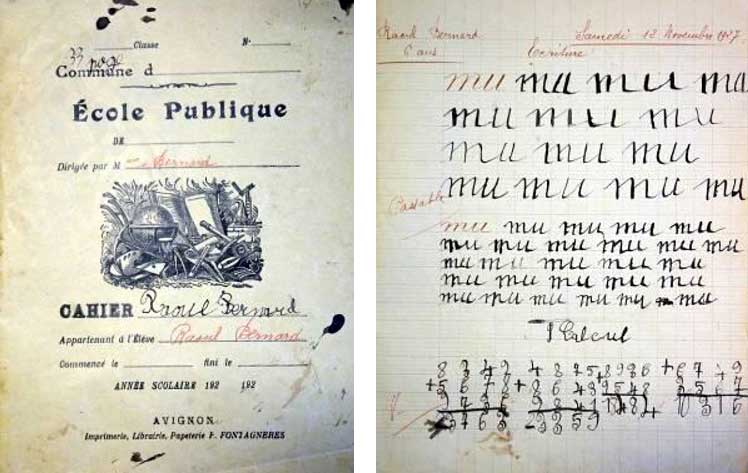 Classe N°
33 page
Commune d
École Publique
DE
Dirigée par M Bernard
CAHIER Raoul Bernard
Appartenant à l'Élève Raoul Bernard
Commencé le fini le
ANNÉE SCOLAIRE 192 192
AVIGNON
Imprimerie, Librairie, Papeterie P. FONTAGNÈRES
Raoul Bernard Samedi 12 Novembre 1927
6 ans Ecriture
mu mu mu mu
mu mu mu mu
mu mu mu
mu mu mu mu
Passable
mu mu mu mu mu
mu mu mu mu mu mu
mu mu mu mu mu
mu mu mu mu mu
mu mu mu mu mu mu
Calcul
8349 4875 8936 +6749
+5678 +8643 9548 3567
9736 9841 18484 10316
23763 23359